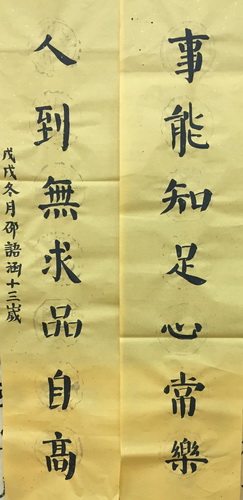 事能知足心常樂
人到無求品自高
戊戌冬月邵語涵十三歲